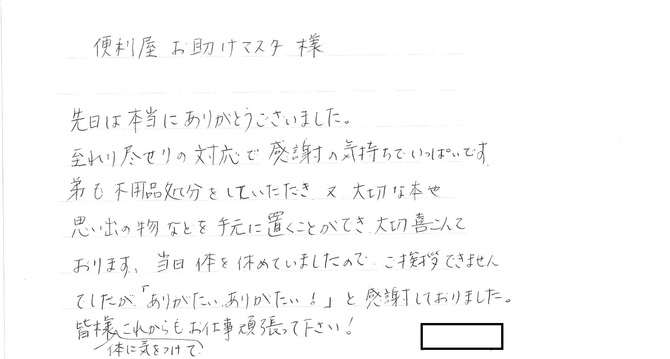 便利屋 お助けマスタ 様
先日は本当にありがとうございました。
至れり尽せりの対応で感謝の気持ちでいっぱいです
弟も不用品処分をしていただき 又 大切な本や
思い出の物などを手元に置くことができ 大切喜こんで
おります。当日 体を休めていましたので ご挨拶できません
でしたが「ありがたい、ありがたい!」と感謝しておりました。
皆様これからもお仕事頑張って下さい!
体に気をつけて